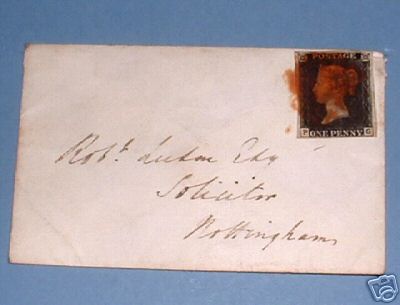 POSTAGE
ONE PENNY
Robt. Esqr
Solicitor
Nottingham